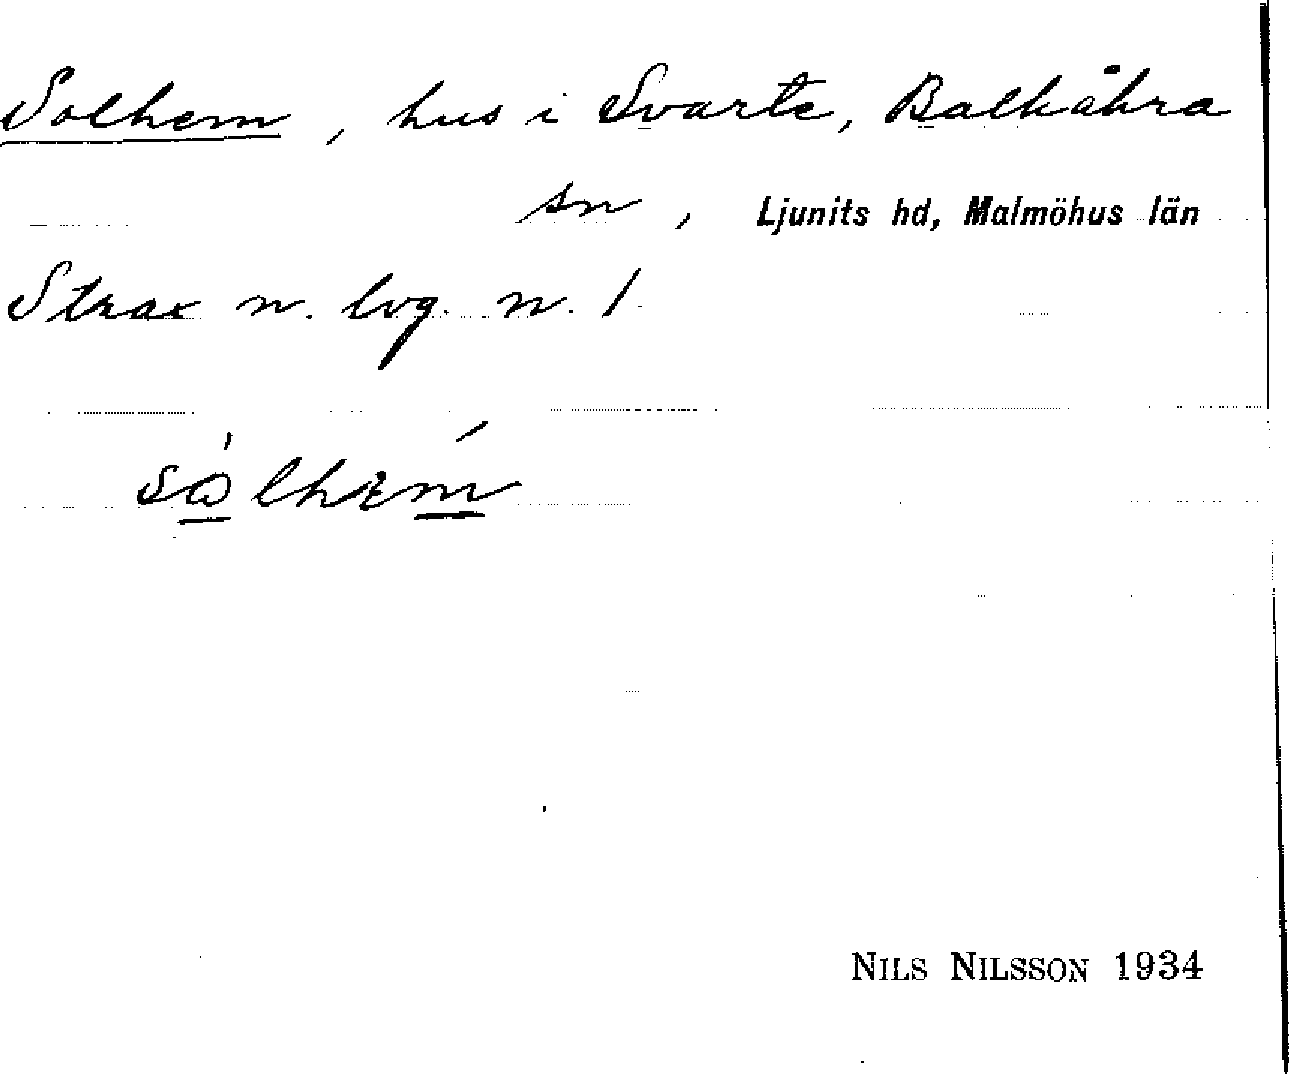 Solhem, hus i Svarte, Balkåkra
sn, Ljunits hd, Malmöhus län
Strax n. lvg. n. 1
NILS NILSSON 1934